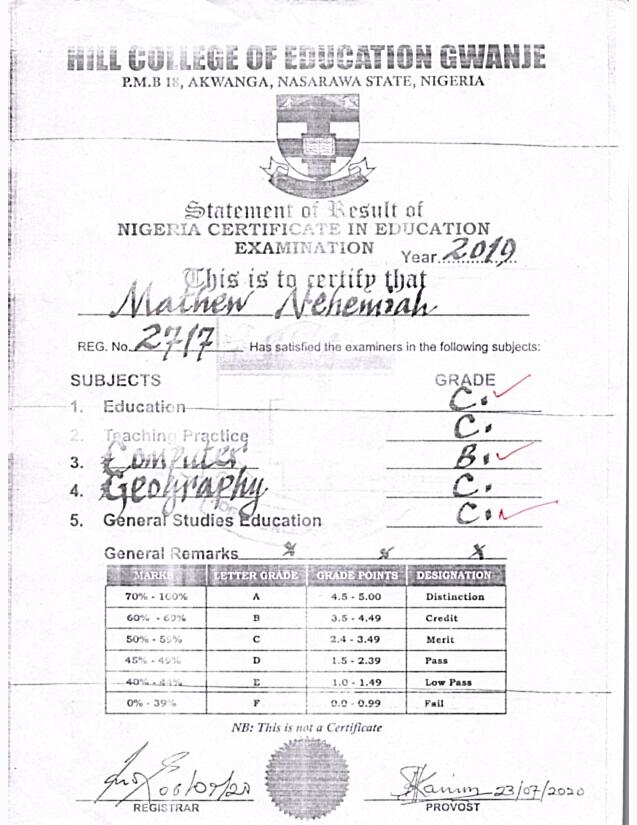 HILL COLLEGE OF EDUCATION GWANJE
P.M.B 18, AKWANGA, NASARAWA STATE, NIGERIA
Statement of Result of
NIGERIA CERTIFICATE IN EDUCATION
EXAMINATION Year 2019
This is to certify that
Mathew Nehemiah
REG. No. 2717 Has satisfied the examiners in the following subjects:
SUBJECTS GRADE
1. Education C.
2. Teaching Practice C.
3. Computer B.
4. Geography C.
5. General Studies Education C.
General Remarks x x x
MARKS LETTER GRADE GRADE POINTS DESIGNATION
70% - 100% A 4.5 - 5.00 Distinction
60% - 69% B 3.5 - 4.49 Credit
50% - 59% C 2.4 - 3.49 Merit
45% - 49% D 1.5 - 2.39 Pass
40% - 44% E 1.0 - 1.49 Low Pass
0% - 39% F 0.0 - 0.99 Fail
NB: This is not a Certificate
06/09/20 23/07/2020
REGISTRAR PROVOST